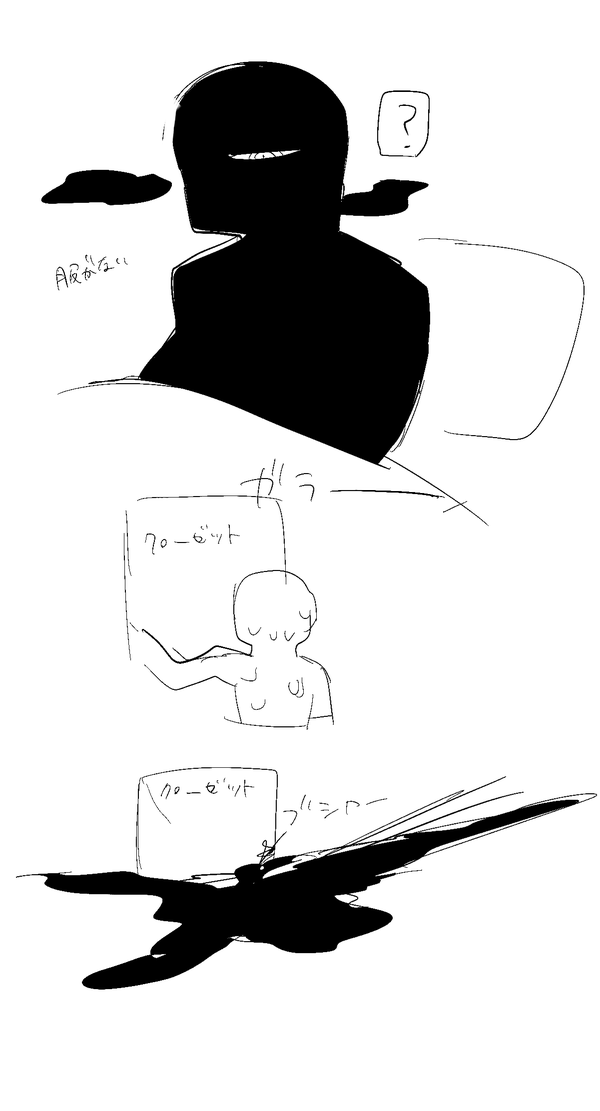 ?
服がない
ガラー
クローゼット
クローゼット
ブシャー